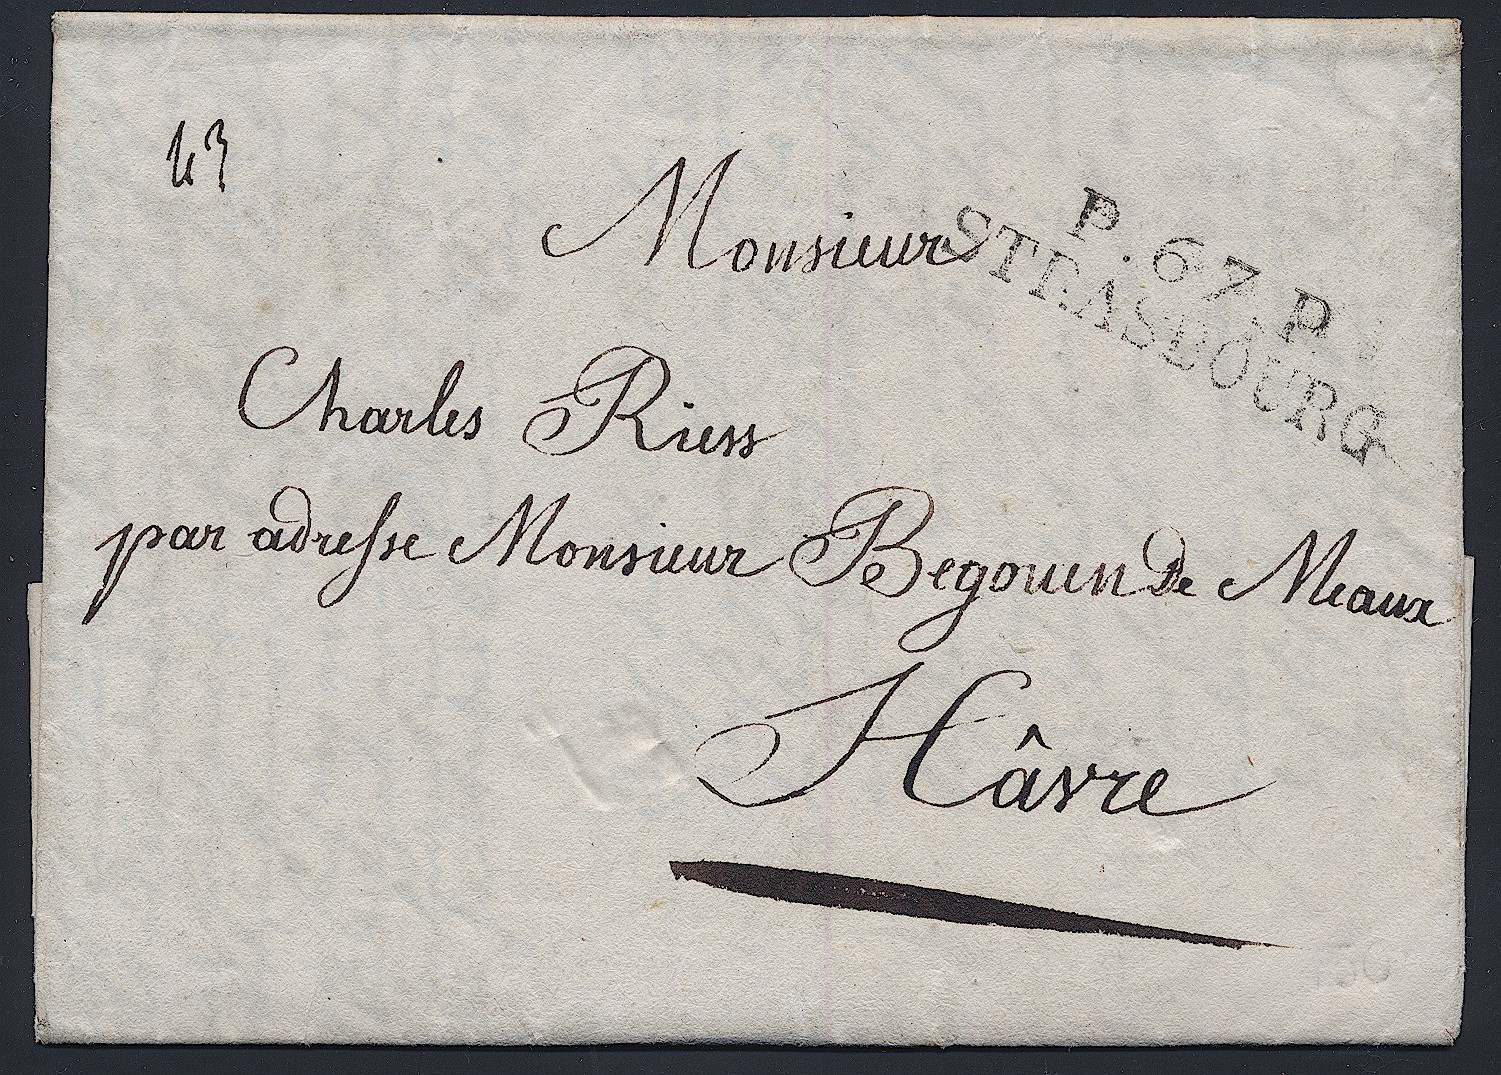 43
Monsieur
P. 67. P.
STRASBOURG
Charles Riess
par adresse Monsieur Begouen De Meaux
Hâvre